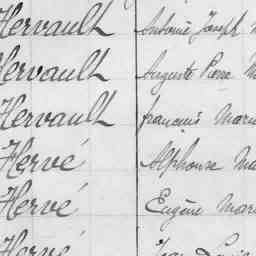 Hervault Antoine Joseph
Hervault Auguste Pierre
Hervault François Marie
Hervé Alphonse
Hervé Eugène Mari
Hervé Jean Louis